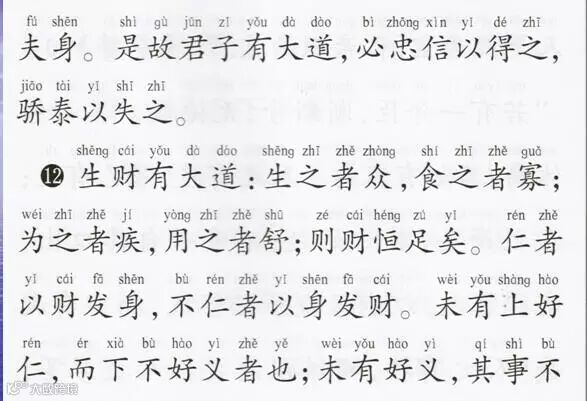 fú shēn shì gù jūn zǐ yǒu dà dào bì zhōng xìn yǐ dé zhī
夫身。是故君子有大道,必忠信以得之,
jiāo tài yǐ shī zhī
骄泰以失之。
shēng cái yǒu dà dào shēng zhī zhě zhòng shí zhī zhě guǎ
⓬生财有大道:生之者众,食之者寡;
wéi zhī zhě jí yòng zhī zhě shū zé cái héng zú yǐ rén zhě
为之者疾,用之者舒;则财恒足矣。仁者
yǐ cái fā shēn bù rén zhě yǐ shēn fā cái wèi yǒu shàng hào
以财发身,不仁者以身发财。未有上好
rén ér xià bù hào yì zhě yě wèi yǒu hào yì qí shì bù
仁,而下不好义者也;未有好义,其事不